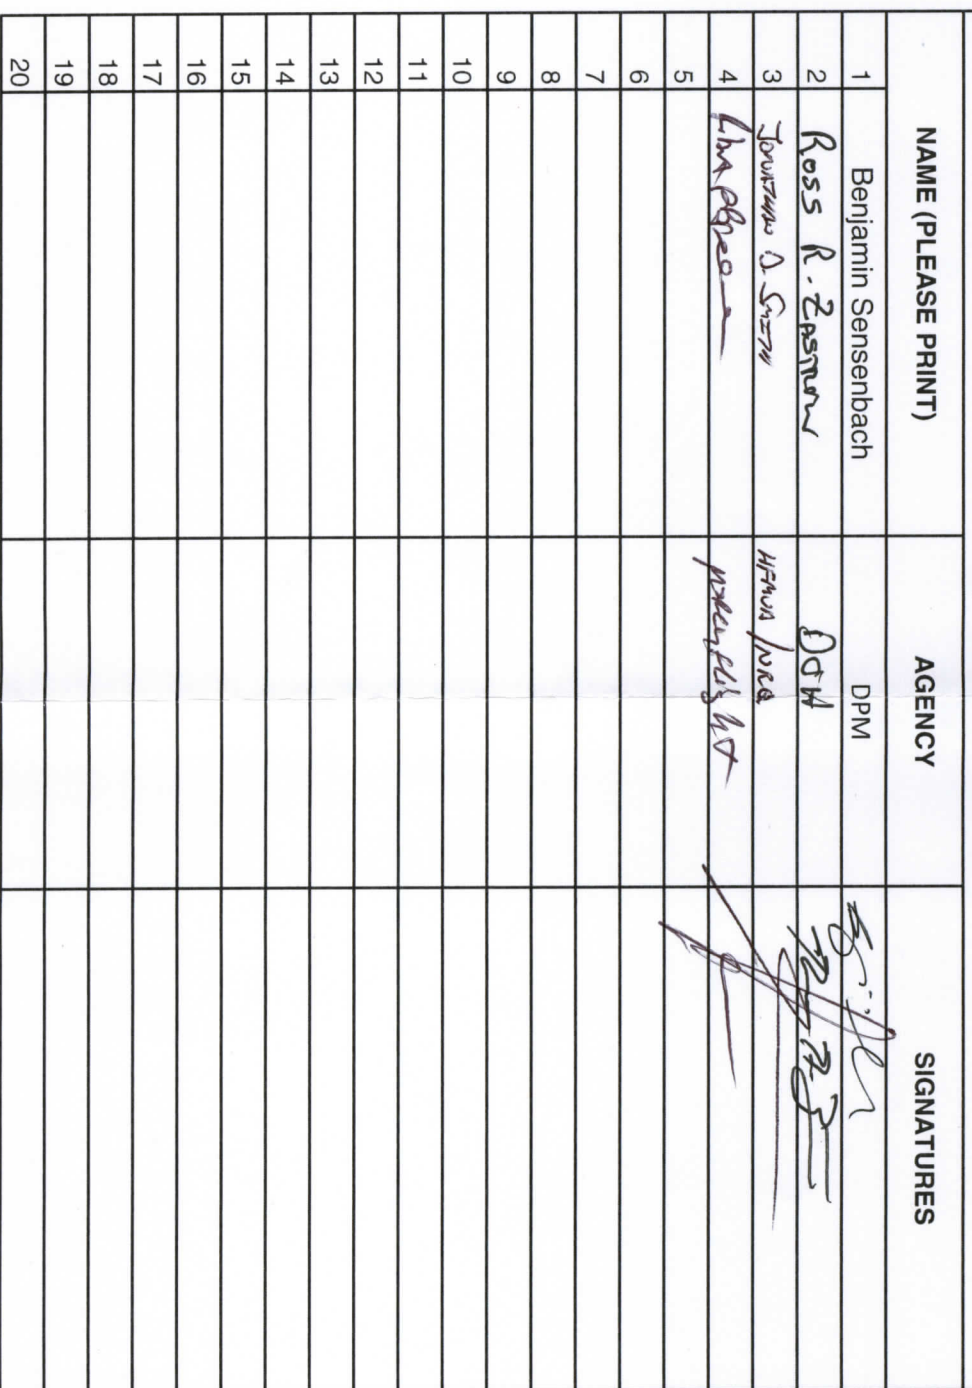 NAME (PLEASE PRINT) AGENCY SIGNATURES
1 Benjamin Sensenbach DPM
2 Ross R. Zastrow DOH
3 Jonathan D. Smith HFMVA/NRQ
4
5
6
7
8
9
10
11
12
13
14
15
16
17
18
19
20